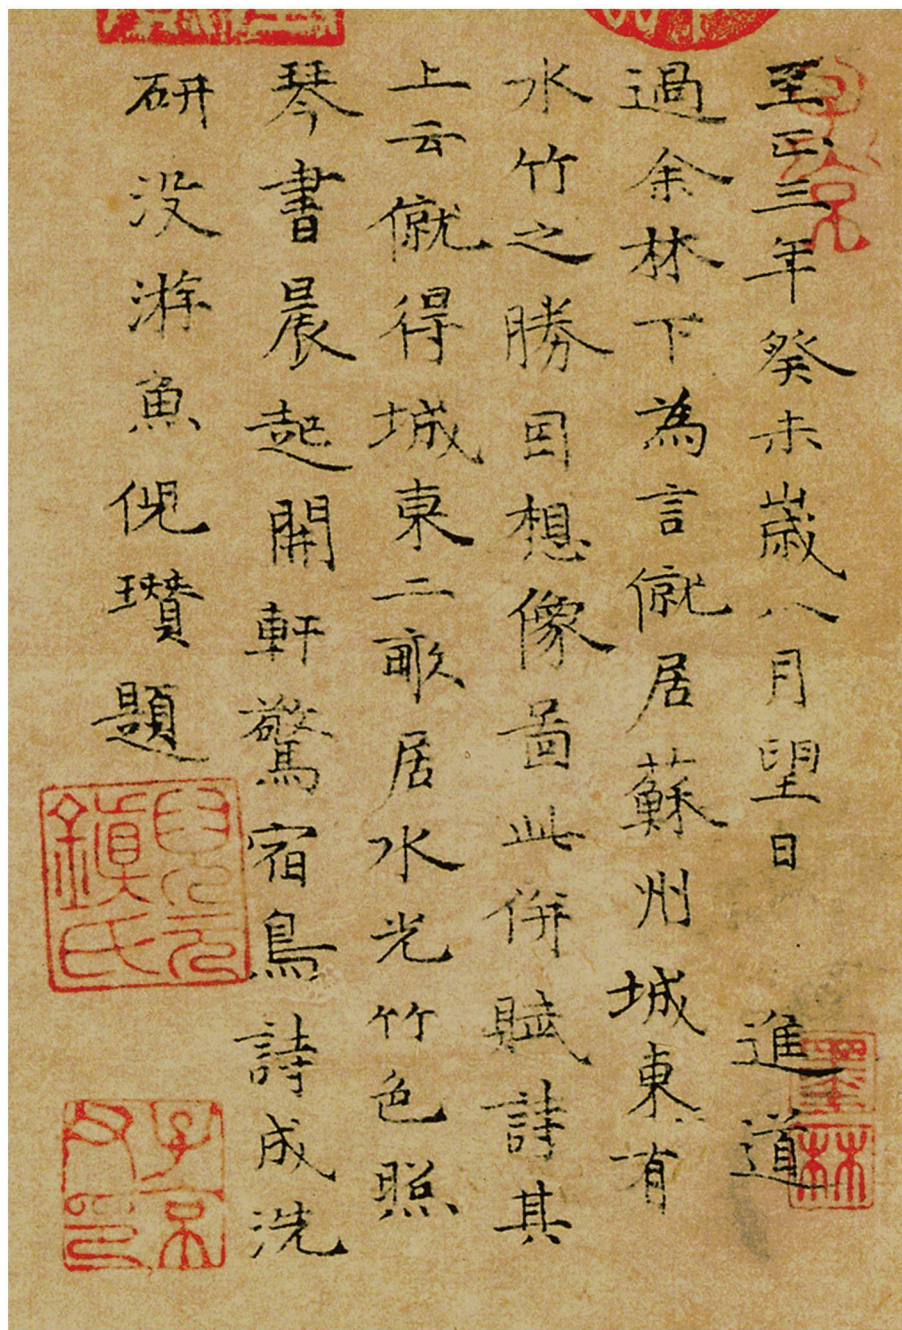 至正三年癸未歲八月望日　進道
過余林下為言僦居蘇州城東有
水竹之勝因想像啚此併賦詩其
上云僦得城東二畝居水光竹色照
琴書晨起開軒驚宿鳥詩成洗
研没游魚倪瓚題
子京
墨林
倪元鎮氏
子京父印